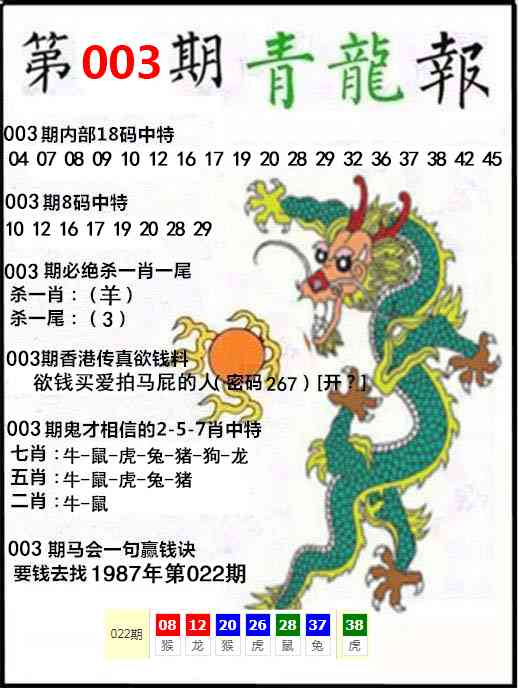 第003期 青龍報
003期内部18码中特
04 07 08 09 10 12 16 17 19 20 28 29 32 36 37 38 42 45
003期8码中特
10 12 16 17 19 20 28 29
003 期必绝杀一肖一尾
杀一肖：（羊）
杀一尾：（3）
003期香港传真欲钱料
欲钱买爱拍马屁的人(密码267)[开?]
003期鬼才相信的2-5-7肖中特
七肖：牛-鼠-虎-兔-猪-狗-龙
五肖：牛-鼠-虎-兔-猪
二肖：牛-鼠
003 期马会一句赢钱诀
要钱去找1987年第022期
022期 08 12 20 26 28 37 38
猴 龙 猴 虎 鼠 兔 虎